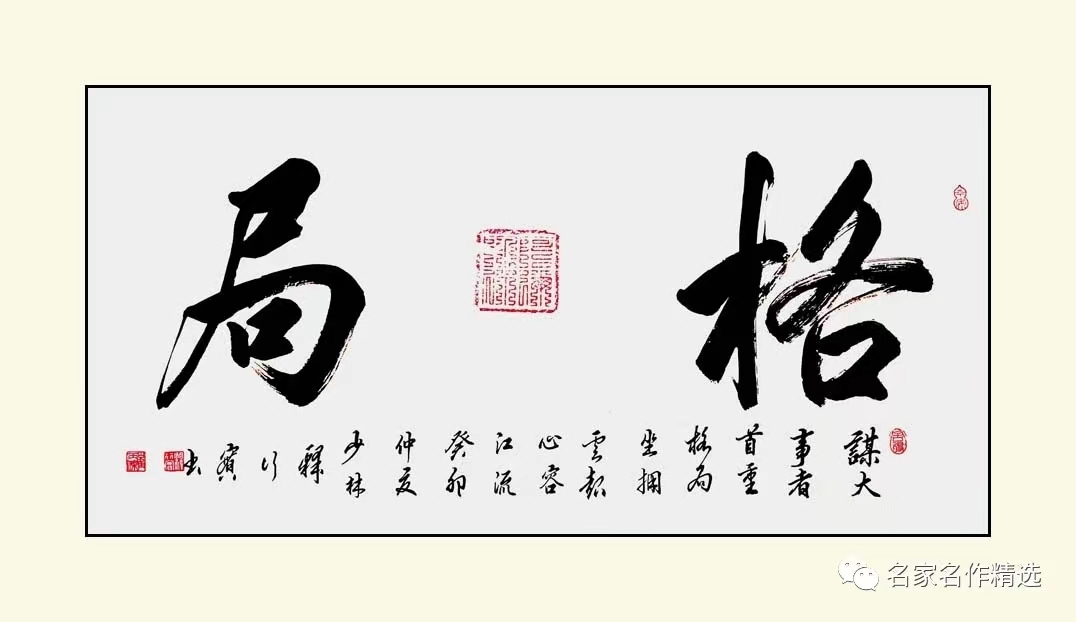 格局
謀大
事者
首重
格局
坐拥
雲起
心容
江流
癸卯
仲夏
少林
釋
行
賓
书
名家名作精选